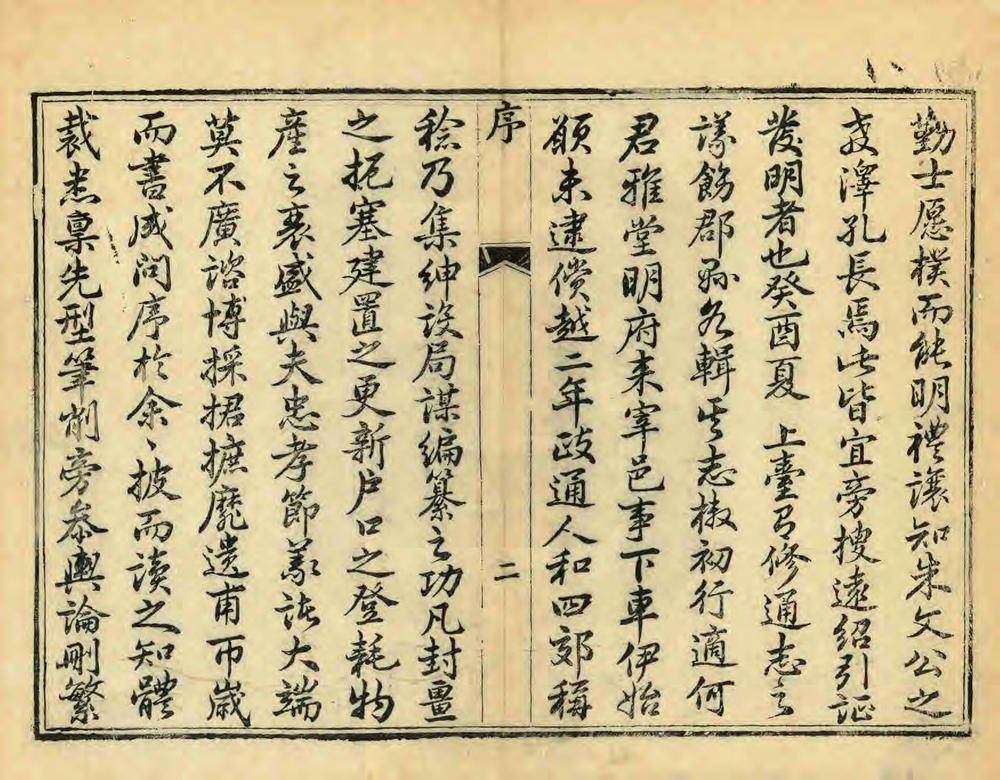 勤士愿樸而能明禮讓知朱文公之
教澤孔長焉此皆宜旁搜遠紹引証
發明者也癸酉夏 上臺有修通志之
議飭郡縣各輯其志檄初行適何
君雅堂明府來宰邑事下車伊始
願未逮償越二年政通人和四郊稱
序
二
稔乃集紳設局謀編纂之功凡封畺
之扼塞建置之更新戶口之登耗物
產之衰盛與夫忠孝節義諸大端
莫不廣諮博採捃摭靡遺甫帀歲
而書成問序於余〻披而讀之知體
裁悉稟先型筆削旁叅輿論刪繁